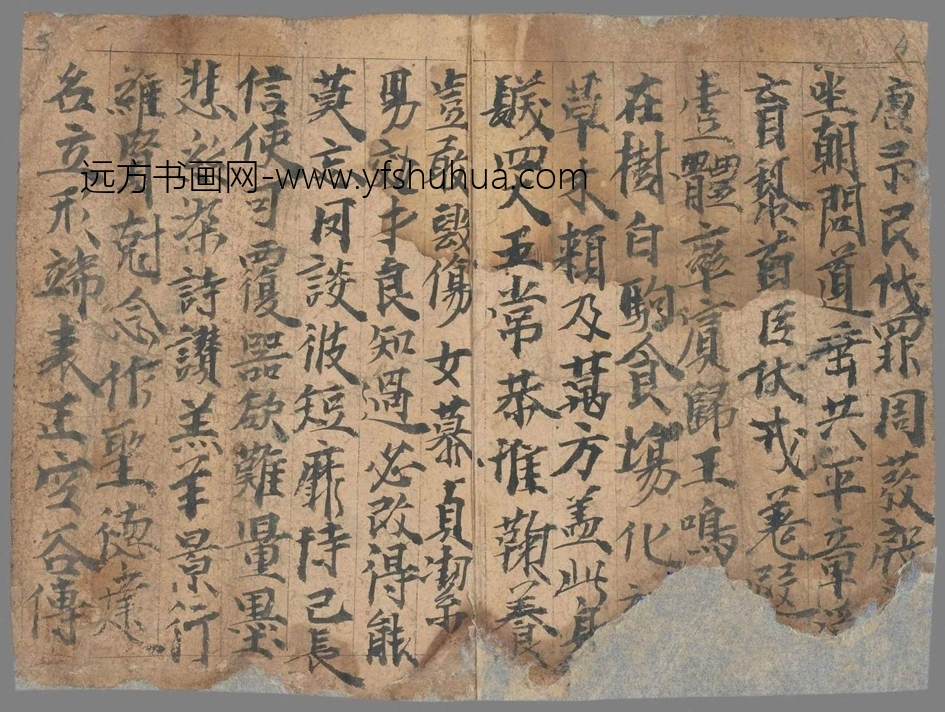 唐吊民伐罪周發殷
坐朝問道垂共平章
育黎首臣伏戎羌遐
壹體率賓歸王鳴
在樹白駒食場化
草木賴及萬方盖此身
髮四大五常恭惟鞠養
豈敢毀傷女慕貞潔
男効才良知過必改得能
莫忘罔談彼短靡恃己長
信使可覆器欲難量墨
悲絲染詩讚羔羊景行
維賢尅念作聖德建
名立形端表正空谷傳
远方书画网-www.yfshuhua.com